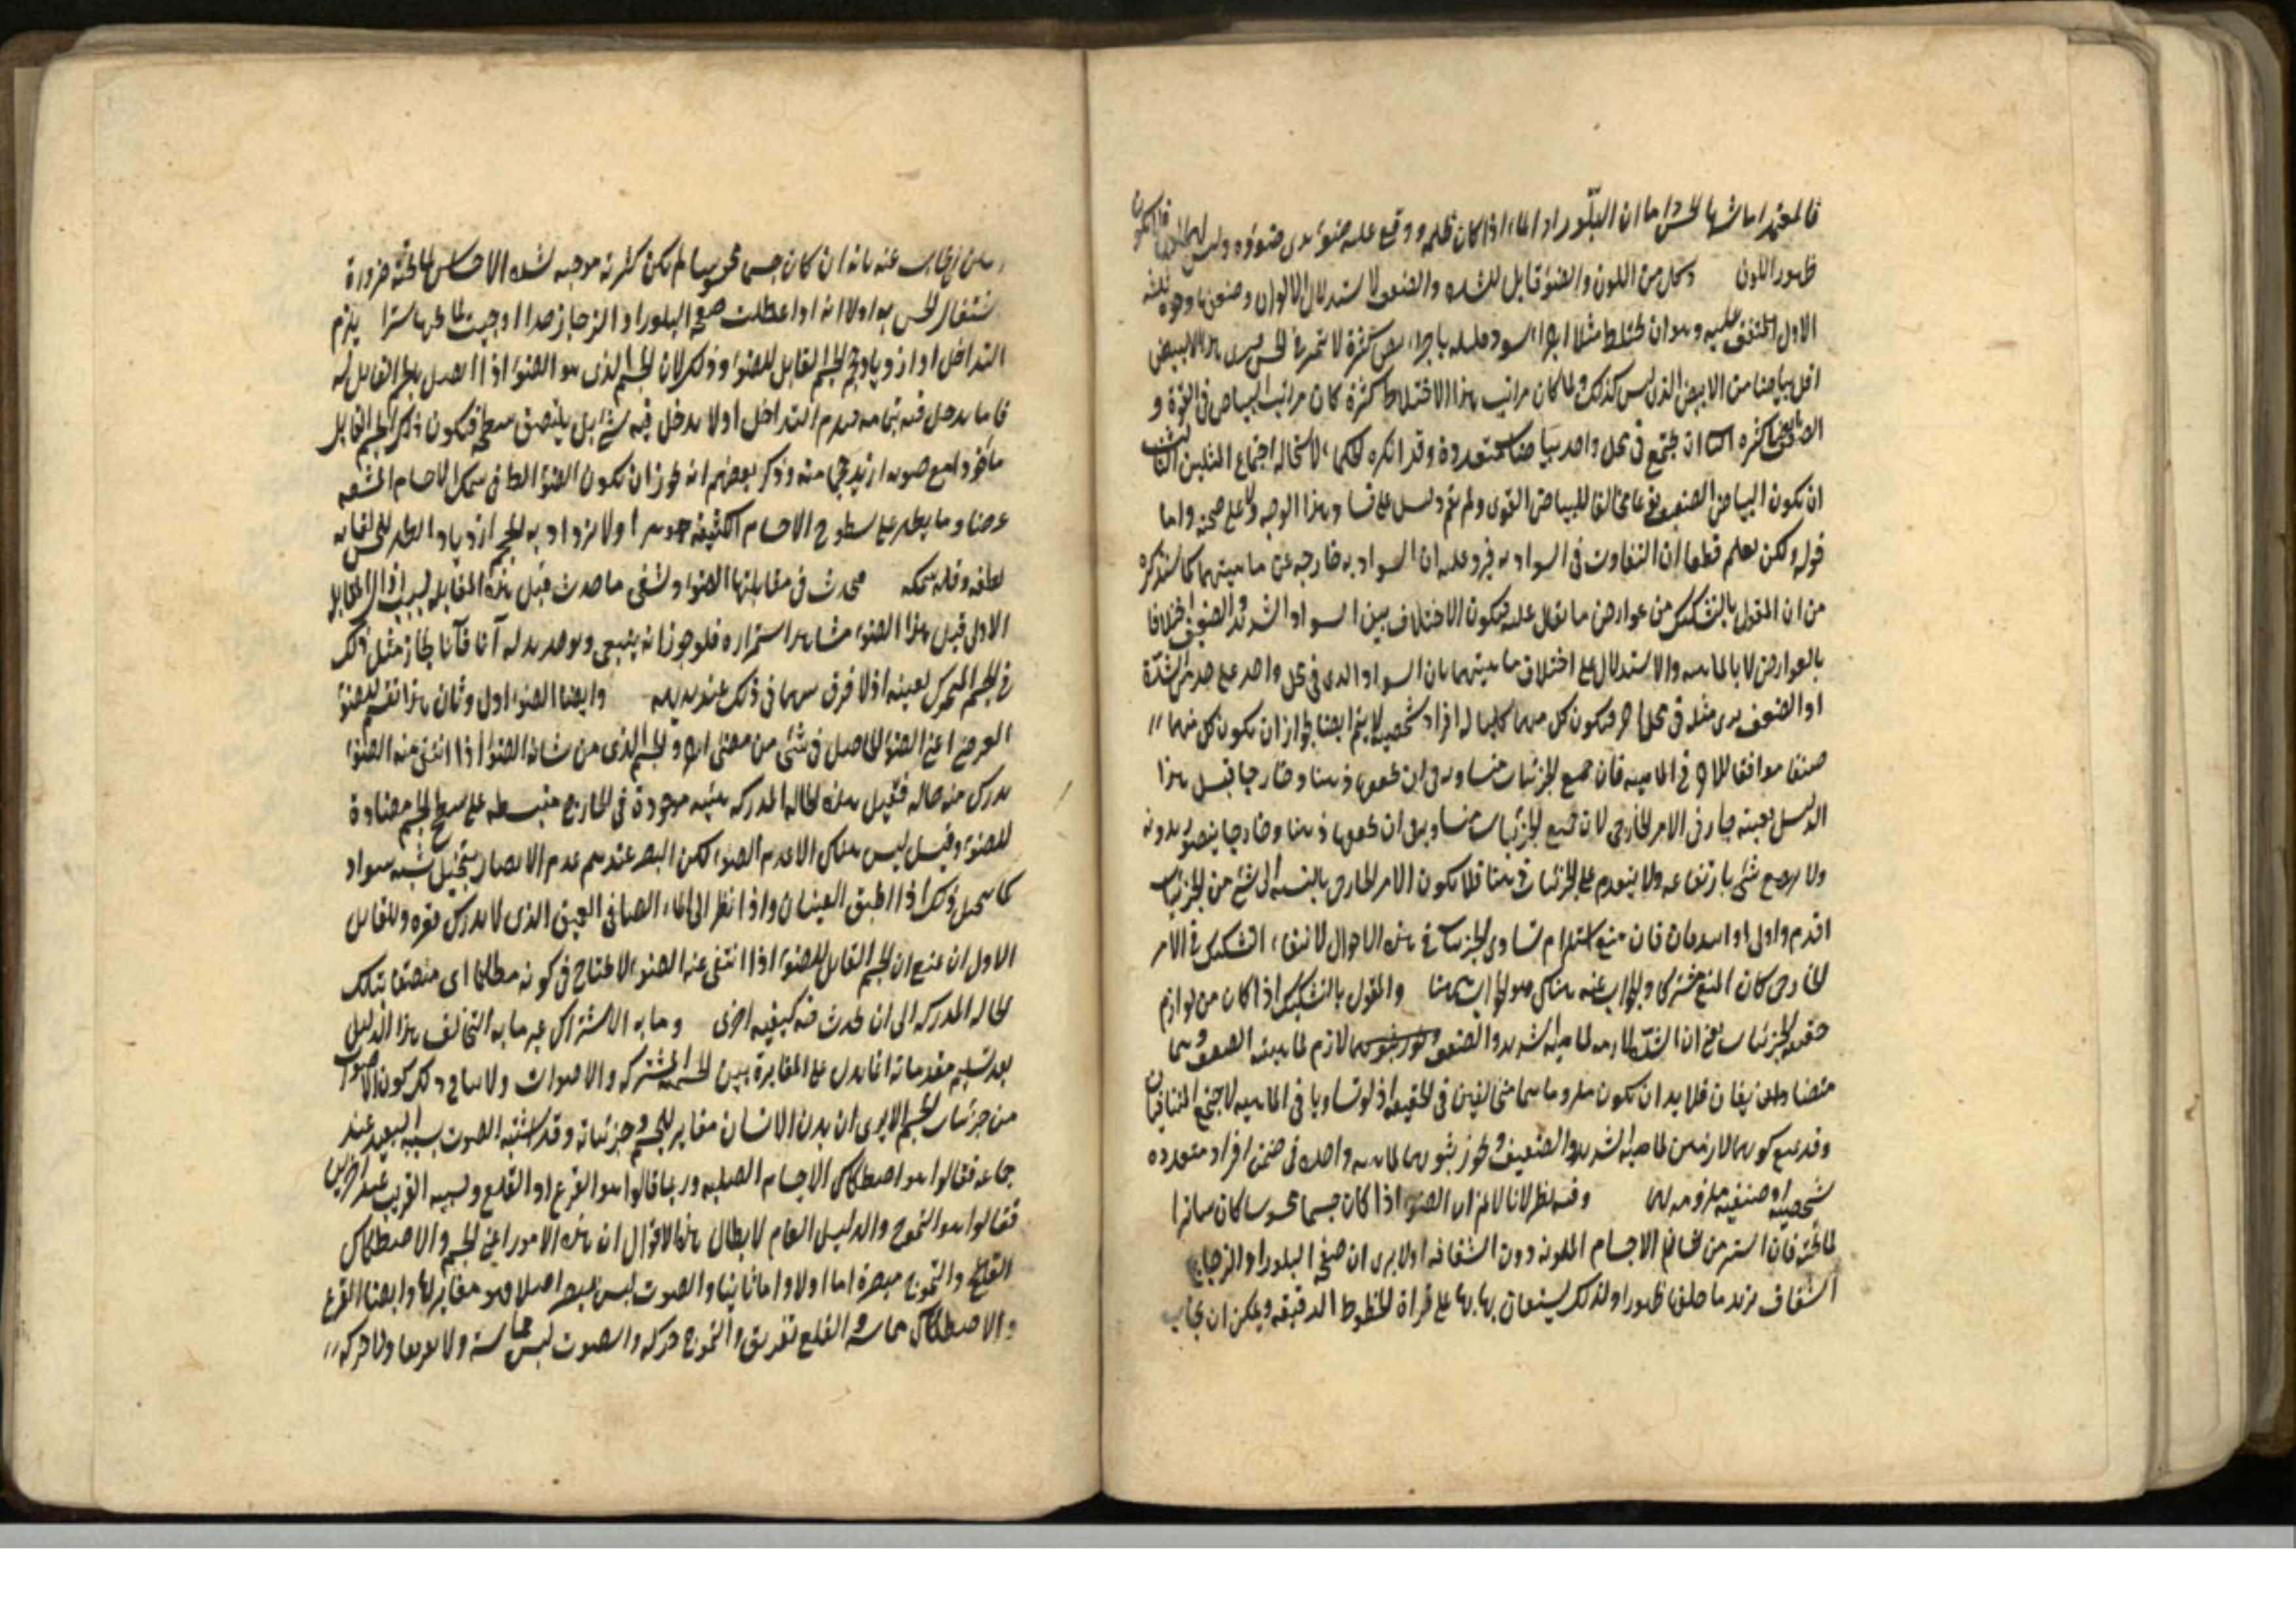 فالمعتمد اما شهادة الحس اما ان البلور او الماء اذا كان ظلمة ووقع عليه ضوء يرى ضوؤه وليس
ظهور اللون وكل من اللون والضوء قابل للشدة والضعف لاستدلال الالوان وضعفها وجوه ثلثة
الاول المتفق عليه وهو ان يختلط مثلا اجزاء سود قليلة باجزاء بيض كثيرة لا يتميز في الحس فيرى هذا الابيض
اقل بياضا من الابيض الذي ليس كذلك ولما كان مراتب هذا الاختلاط كثيرة كان مراتب البياض في القوة و
الضعف ايضا كثيرة ان يجتمع في محل واحد بياضات متعددة وقد انكره الحكماء لاستحالة اجتماع المثلين الثالث
ان يكون البياض الضعيف نوعا مخالفا للبياض القوى ولم يقم دليل على فساد هذا الوجه ولا على صحته واما
قوله ولكن نعلم قطعا ان التفاوت في السوادية فيرد عليه ان السوادية خارجة عن ماهيتهما كما سنذكره
من ان المقول بالتشكيك من عوارض ما يقال عليه فيكون الاختلاف بين السواد الشديد والضعيف اختلافا
بالعوارض لا بالماهية والاستدلال على اختلاف ماهيتهما بان السواد الذي في محل واحد على حد من الشدة
او الضعف يرى مثله في محل اخر فيكون كل منهما كليا له افراد شخصية لا يتم ايضا لجواز ان يكون كل منهما
صنفا موافقا للاخر في الماهية فان جميع الجزئيات متساوية في ان تحققها ذهنا وخارجا قبل هذا
الدليل بعينه جار في الامر الخارجي لان جميع الجزئيات متساوية في ان تحققها ذهنا وخارجا يتصور بدونه
ولا يرتفع شئ بارتفاعه ولا يتقدم على الجزئيات ذهنا فلا يكون الامر الخارجي بالنسبة الى شئ من الجزئيات
اقدم واولى او اشد فان منع استلزام تساوى الجزئيات في هذه الاحوال لانتفاء التشكيك في الامر
الخارجي كان المنع مشتركا والجواب عنه هناك هو الجواب ههنا والمقول بالتشكيك اذا كان من لوازم
حقيقة الجزئيات يعني ان الشدة لازمة لماهية الشديد والضعف لازم لماهية الضعيف وهما
متضادان متنافيان فلابد ان يكون ملزوماهما متخالفين في الحقيقة اذ لو تساويا في الماهية لاجتمع المتنافيان
وقد يمنع كونهما لازمين لماهية الشديد والضعيف ويجوز ثبوتهما لماهية واحدة في ضمن افراد متعددة
شخصية او صنفية ملزومة لهما وفيه نظر لانا لا نم ان الضوء اذا كان جسما محسوسا كان ساترا
لما تحته فان الستر من خصائص الاجسام الملونة دون الشفافة اولا يرى ان صفحة البلور او الزجاج
الشفاف يزيد ما خلفها ظهورا ولذلك يستعان بها على قراة الخطوط الدقيقة ويمكن ان يجاب
يمكن ان يجاب عنه بانه ان كان جسما محسوسا لم يكن كثرته موجبة لشدة الاحساس لما تحته ضرورة
اشتغال الحس به اولا الا انه اذا عظمت صفحة البلور او الزجاج جدا اوجبت لما تحتها سترا يلزم
التداخل او ازدياد حجم الجسم القابل للضوء وذلك لان الجسم الذي هو الضوء اذا اتصل بالجسم القابل له
فاما يدخل فيه بتمامه فيلزم التداخل اولا يدخل فيه شئ بل يلتصق بسطحه فيكون ذلك الجسم القابل
ماخوذا مع ضوءه ازيد حجما منه وذكر بعضهم انه يجوز ان يكون الضوء الظاهر في سمك الاجسام المشعة
عرضا وما يظهر على سطوح الاجسام الكثيفة جوهرا ولا يزداد به الحجم ازديادا يظهر للحس لغاية
لطافه وقلة سمكه فيحدث في مقابلتها الضوء وينتفي ما حدث قبل هذه المقابلة بسبب زوال المقابلة
الاولى قبل هذا الضوء مشاهد استمراره فلو جوز انه ينتفي ويوجد بدله آنا فآنا لجاز مثل ذلك
في الجسم المتحرك بعينه اذ لا فرق بينهما في ذلك عند بديهة وايضا الضوء اول وثان هذا تقسيم للضوء
العرضي اعني الضوء الحاصل في شئ من مضئ اخر والجسم الذي من شانه الضوء اذا انتفى منه الضوء
يدرك منه حالة فقيل هذه الحالة المدركة هيئة موجودة في الخارج منبسطة على سطح الجسم مضادة
للضوء وقيل ليس هناك الا عدم الضوء لكن البصر عند عدم الابصار يتخيل شبه سواد
كما يتخيل ذلك اذا اطبق العينان واذا نظر الى الماء الصافي العميق الذي لا يدرك قعره وللقائل
الاول ان يمنع ان الجسم القابل للضوء اذا انتفى عنه الضوء لا يحتاج في كونه مظلما اى متصفا بتلك
الحالة المدركة الى ان يحدث فيه كيفية اخرى وما به الاشتراك غير ما به التخالف هذا الدليل
بعد تسليم مقدماته انما يدل على المغايرة بين الجسمية المشتركة والاصوات ولا ينافي ذلك كون الاصوات
من جزئيات الجسم الا يرى ان بدن الانسان مغاير للجسم وهو جزئياته وقد اشتبه الصوت بسببه البعيد عند
جماعة فقالوا هو اصطكاك الاجسام الصلبة وربما قالوا هو القرع او القلع وبسببه القريب عند اخرين
فقالوا هو التموج والدليل العام لابطال هذه الاقوال ان هذه الامور اعني الجسم والاصطكاك
القلع والتموج مبصرة اما اولا واما ثانيا والصوت ليس مبصرا اصلا فهو مغاير لها وايضا القرع
والاصطكاك مماسة والقلع تفريق والتموج حركة والصوت ليس مماسة ولا تفريقا ولا حركة